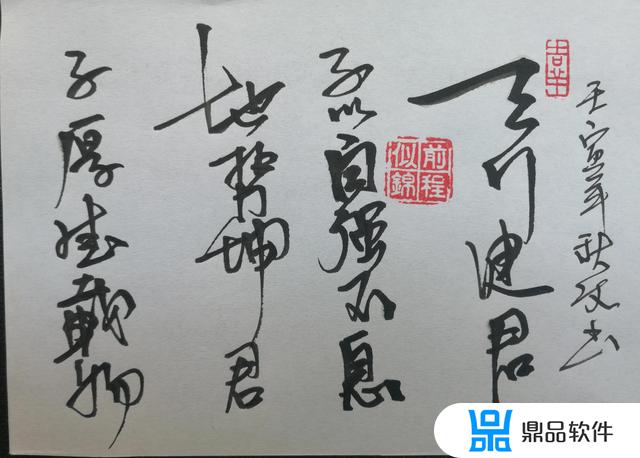 壬寅年秋书
天行健君
前程
似錦
子以自强不息
地势坤君
子厚德载物
鼎品软件